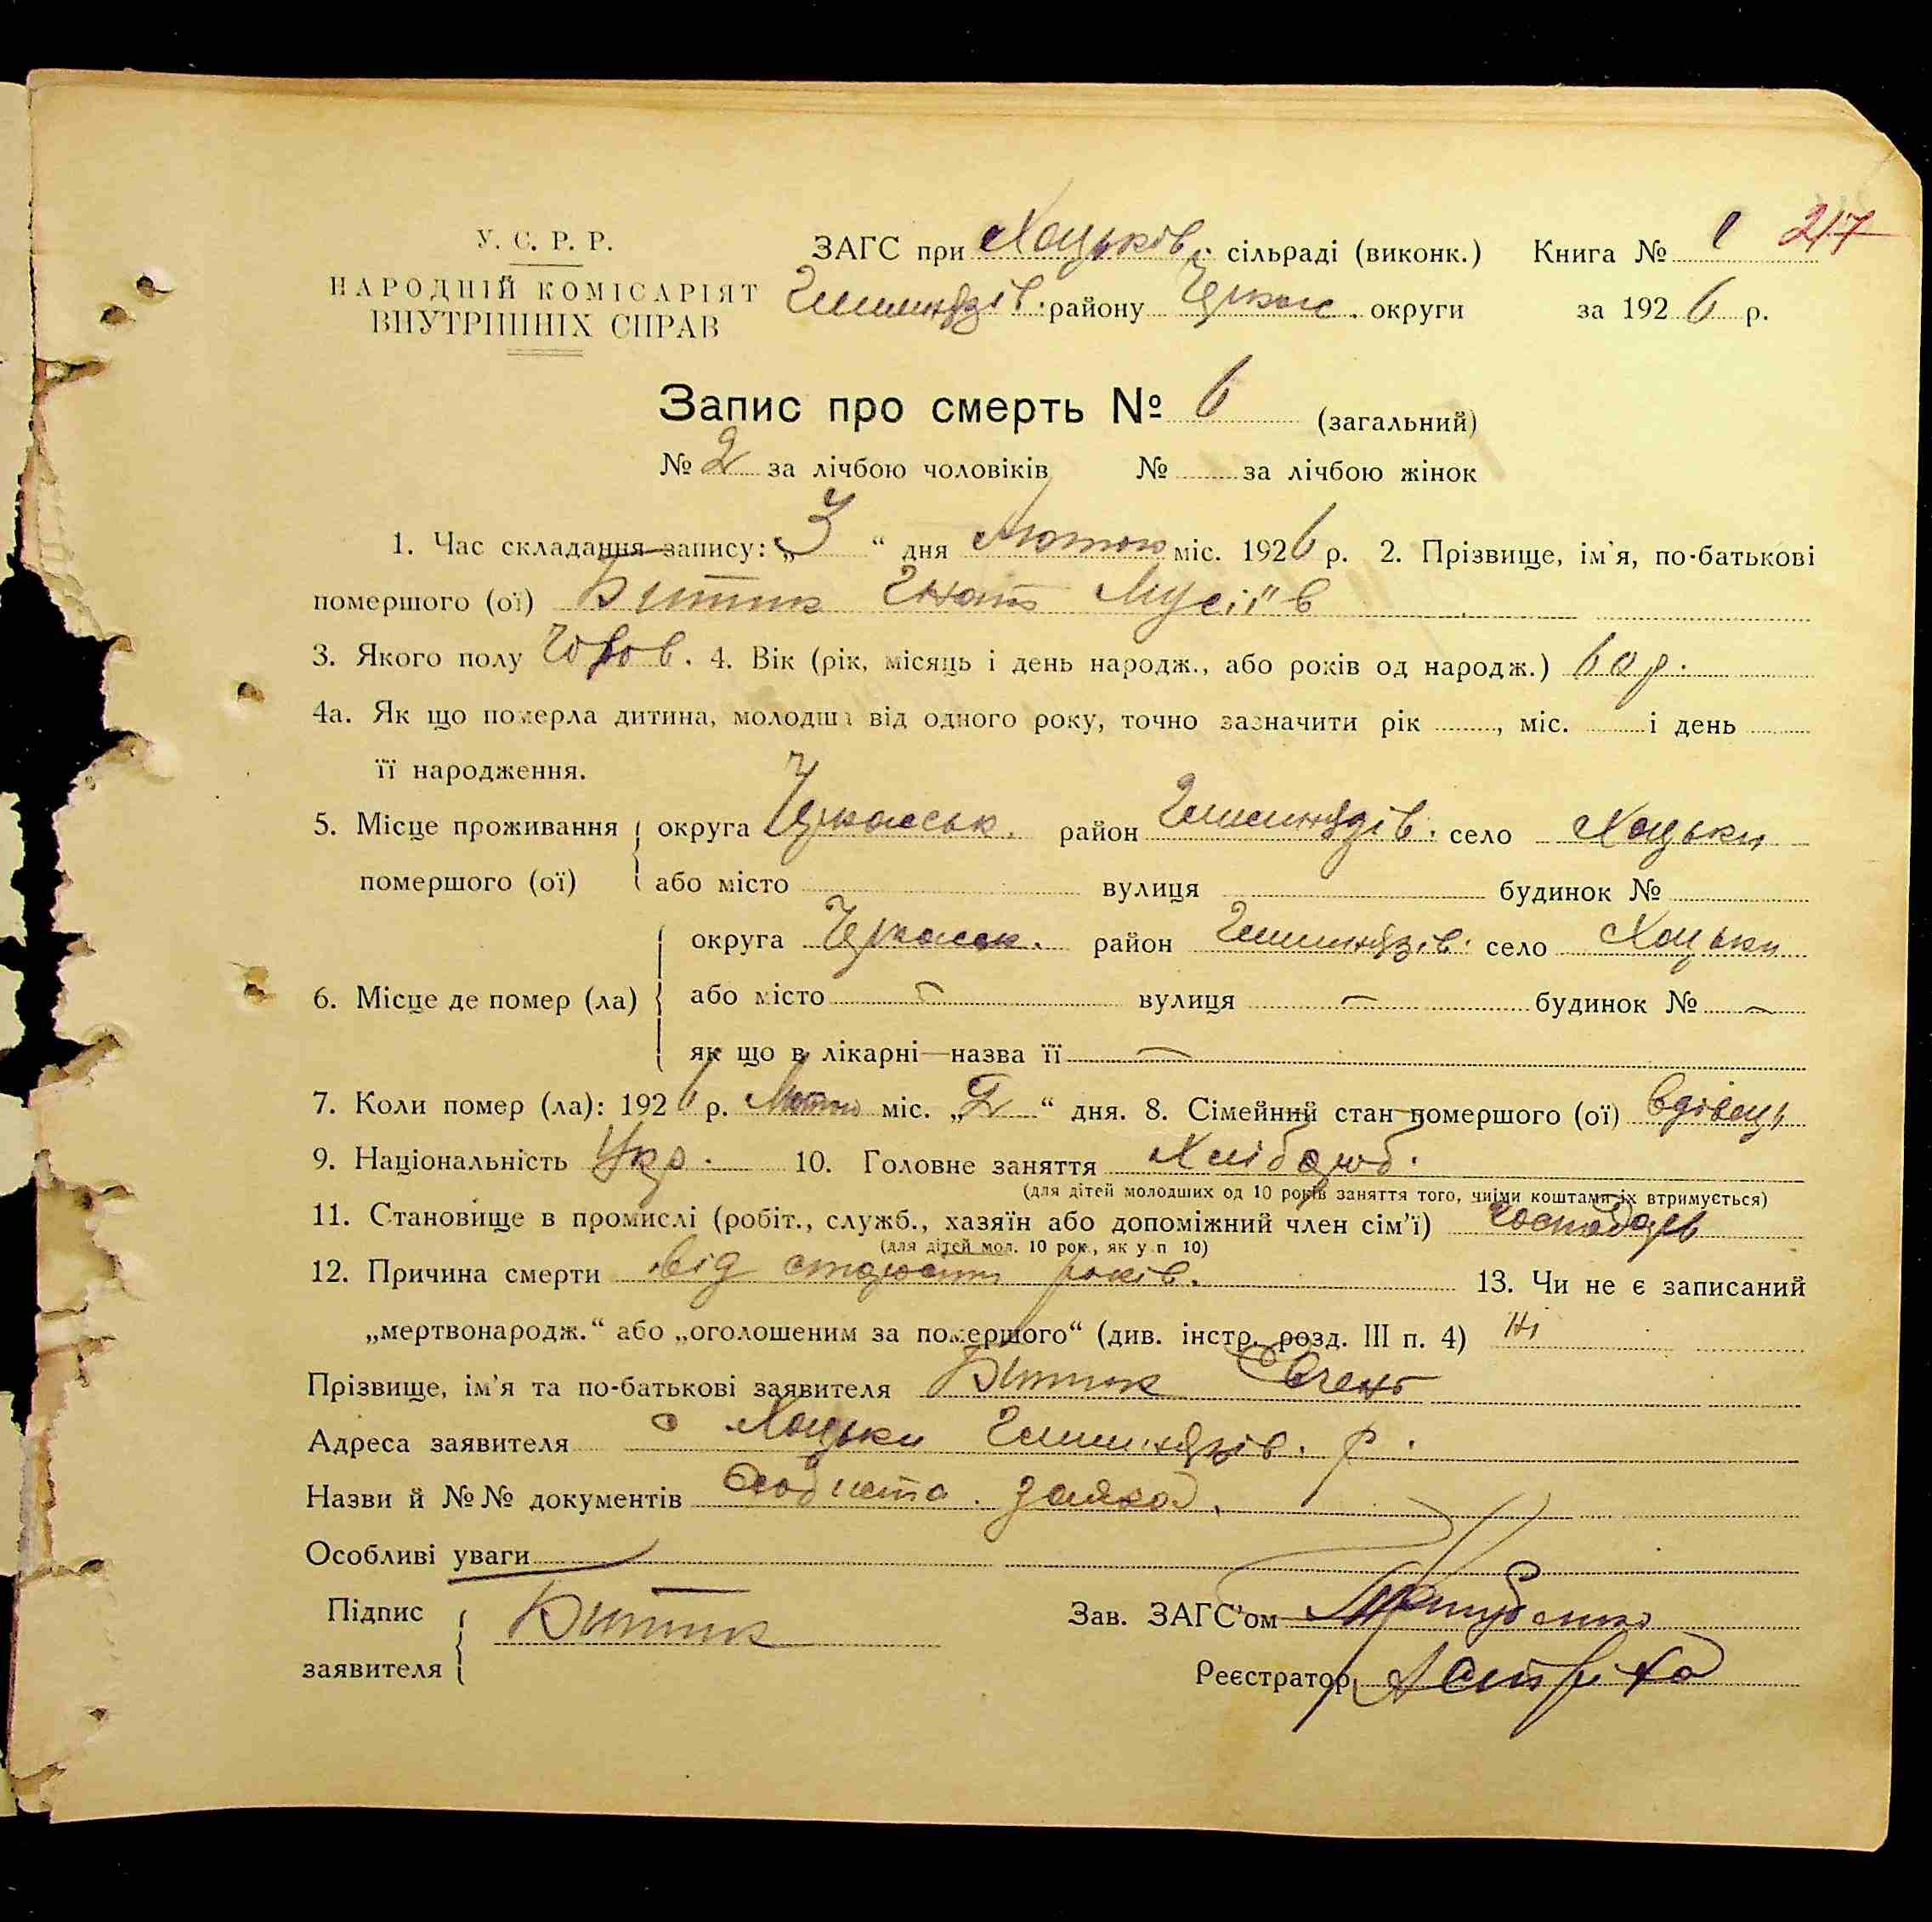 У. С. Р. Р.
НАРОДНІЙ КОМІСАРІЯТ
ВНУТРІШНІХ СПРАВ
ЗАГС при Хоцьків. сільраді (виконк.) Книга № 1 217
Гельмязів. району Черкас. округи за 1926 р.
Запис про смерть № 6 (загальний)
№ 2 за лічбою чоловіків № за лічбою жінок
1. Час складання запису: „3“ дня Лютого міс. 1926 р. 2. Прізвище, ім'я, по-батькові
помершого (ої) Битик Гнат Мусіїв
3. Якого полу Чолов. 4. Вік (рік, місяць і день народж., або років од народж.) 60 р.
4а. Як що померла дитина, молодша від одного року, точно зазначити рік , міс. і день
її народження.
5. Місце проживання помершого (ої) округа Черкаськ. район Гельмязів. село Хоцьки
або місто вулиця будинок №
6. Місце де помер (ла) округа Черкаськ. район Гельмязів. село Хоцьки
або місто — вулиця — будинок № —
як що в лікарні—назва її —
7. Коли помер (ла): 1926 р. Лютого міс. „2“ дня. 8. Сімейний стан помершого (ої) вдівець
9. Національність Укр. 10. Головне заняття Хлібороб.
(для дітей молодших од 10 років заняття того, чиїми коштами їх втримується)
11. Становище в промислі (робіт., служб., хазяїн або допоміжний член сім'ї) господарь
(для дітей мол. 10 рок., як у п 10)
12. Причина смерти від старости років. 13. Чи не є записаний
„мертвонародж.“ або „оголошеним за помершого“ (див. інстр. розд. III п. 4) ні
Прізвище, ім'я та по-батькові заявителя Битик Євген
Адреса заявителя с Хоцьки Гельмязів. р.
Назви й №№ документів Особиста заява.
Особливі уваги
Підпис заявителя Битик
Зав. ЗАГС'ом
Реєстратор